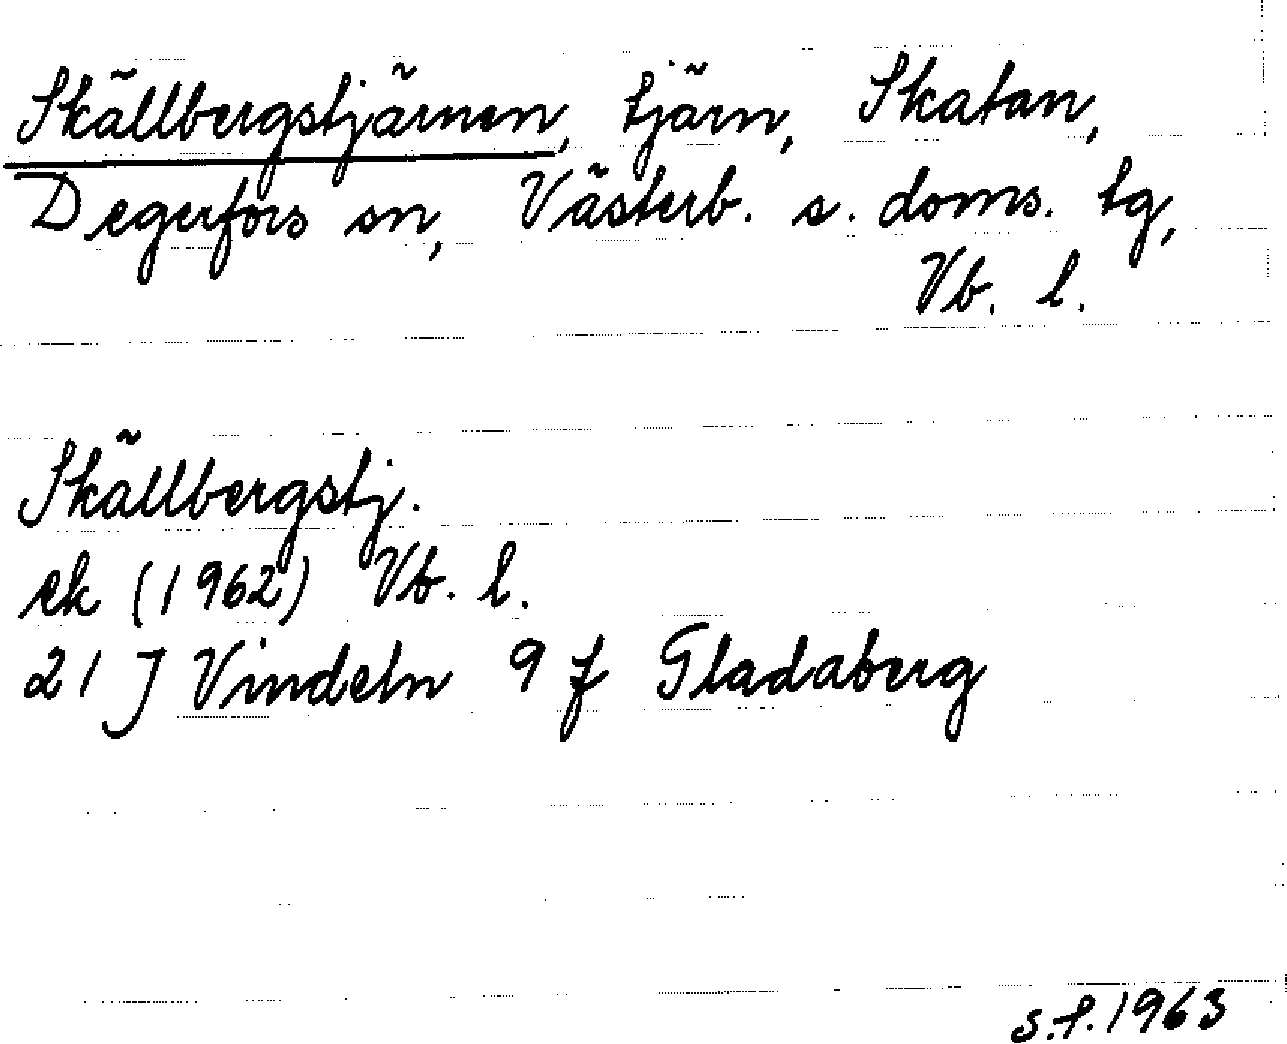 Skällbergstjärnen, tjärn, Skatan,
Degerfors sn, Västerb. s. doms. tg,
Vb. l.
Skällbergstj.
ek (1962) Vb. l.
21 J Vindeln 9 f Gladaberg
s.f. 1963